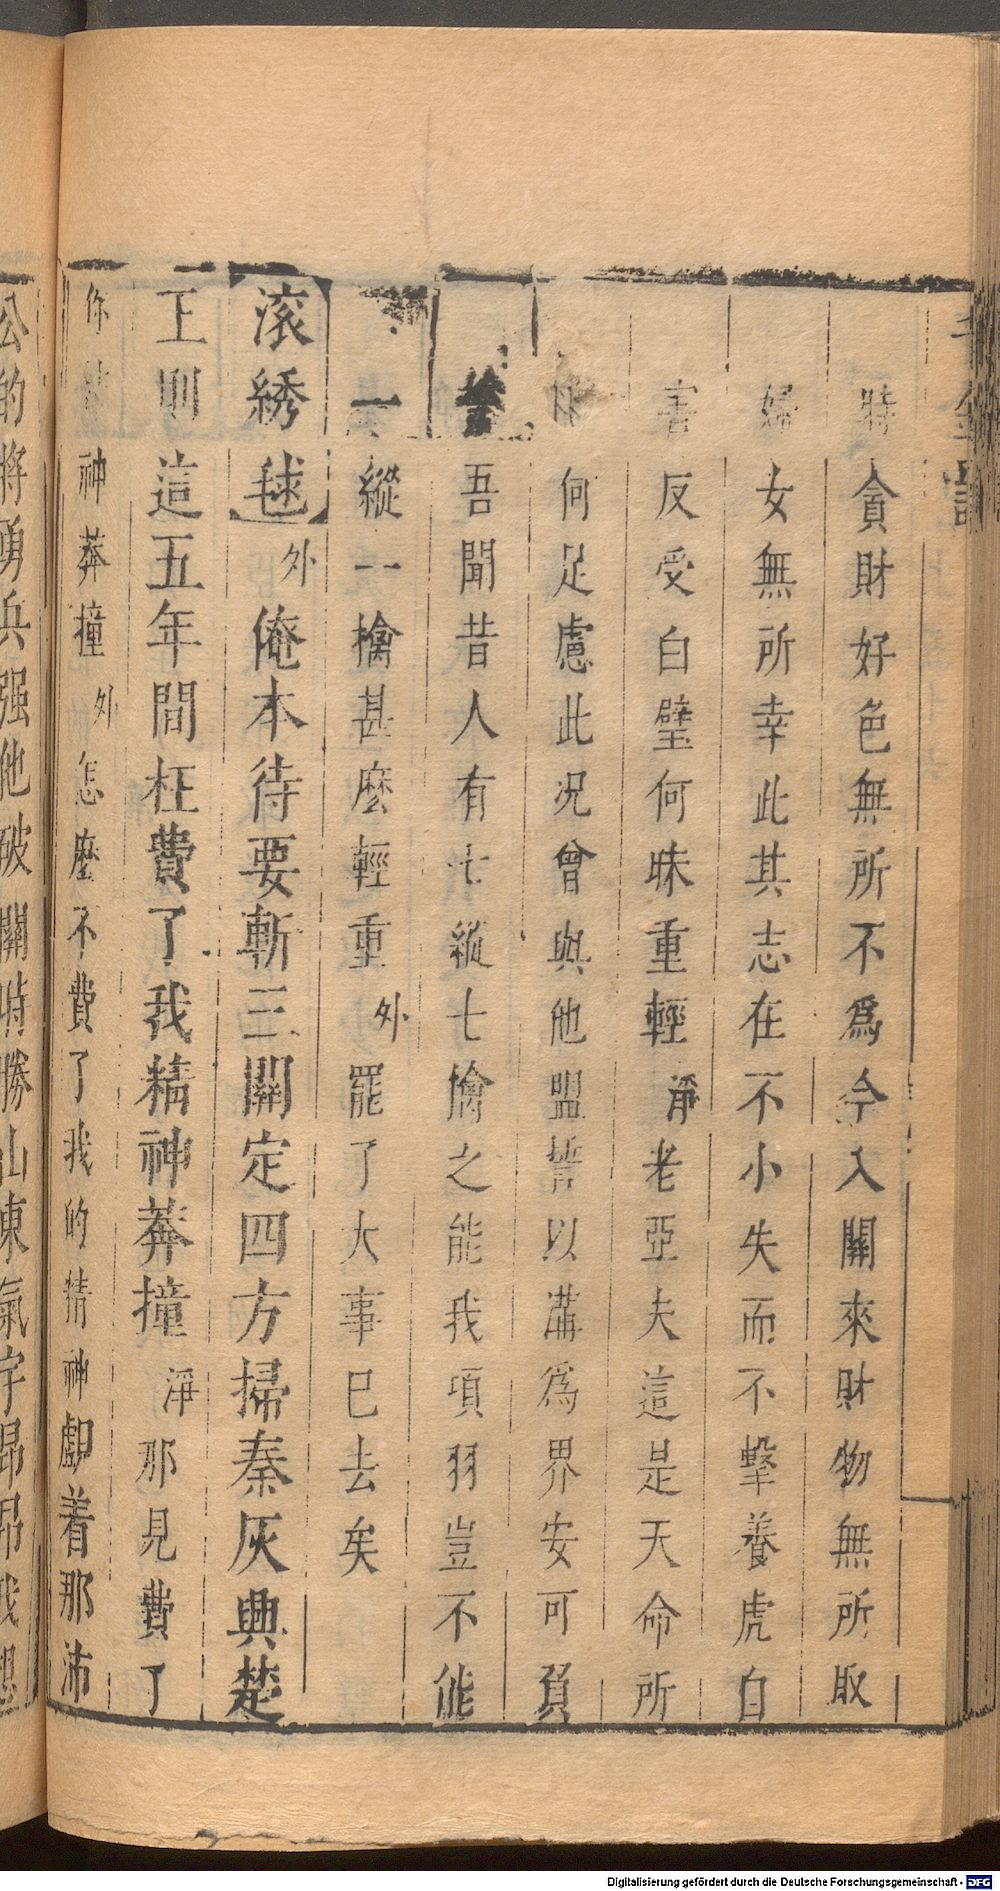 千金記
時貪財好色無所不爲今入關來財物無所取
婦女無所幸此其志在不小失而不擊養虎自
害反受白璧何昧重輕淨老亞夫這是天命所
何足慮此况曾與他盟誓以溝爲界安可負
吾聞昔人有七縱七擒之能我項羽豈不能
一縱一擒甚麽輕重外罷了大事已去矣
滚綉毬外俺本待要斬三關定四方掃秦灰興楚
王則這五年間枉費了我精神莾撞淨那見費了
你精神莾撞外怎麽不費了我的精神覷着那沛
公的將勇兵强他破關時勝山東氣宇昂昂我想
Digitalisierung gefördert durch die Deutsche Forschungsgemeinschaft - DFG